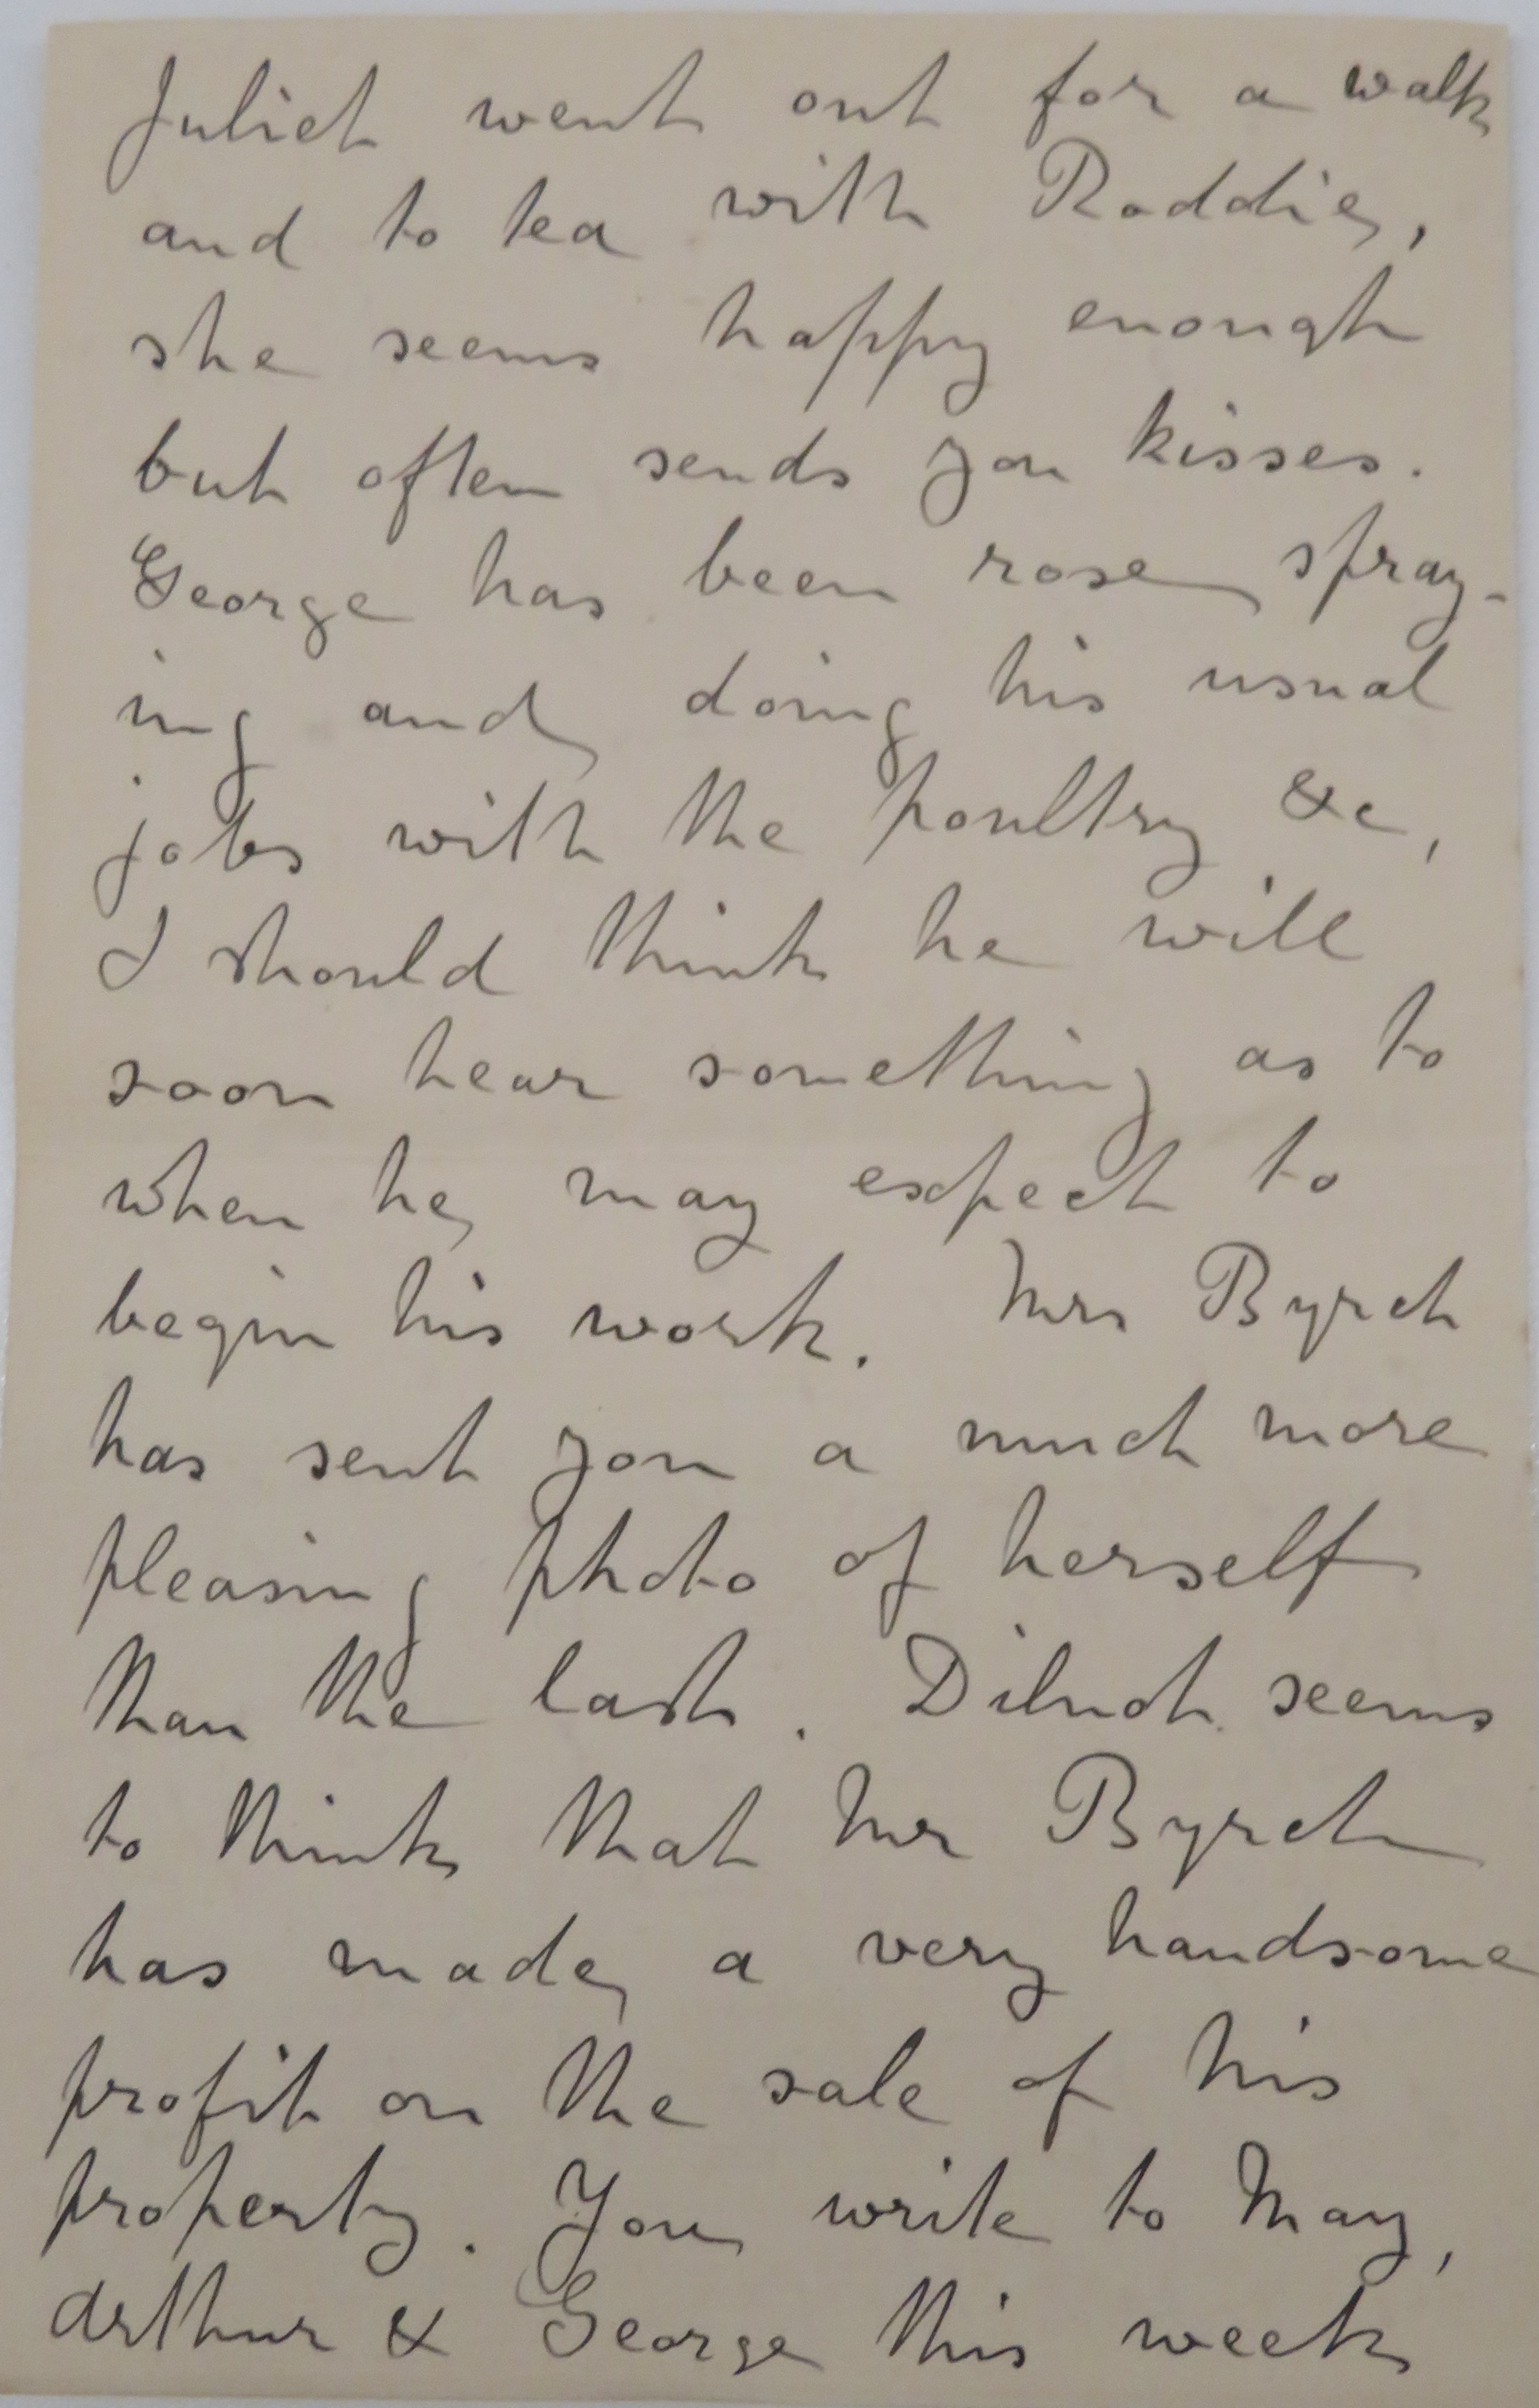 Juliet went out for a walk
and to tea with Roddie,
she seems happy enough
but often sends you kisses.
George has been rose spray-
ing and doing his usual
jobs with the poultry &c,
I should think he will
soon hear something as to
when he may expect to
begin his work. Mrs Byrch
has sent you a much more
pleasing photo of herself
than the last. Dilnot seems
to think that Mr Byrch
has made a very handsome
profit on the sale of his
property. You write to May,
Arthur & George this week